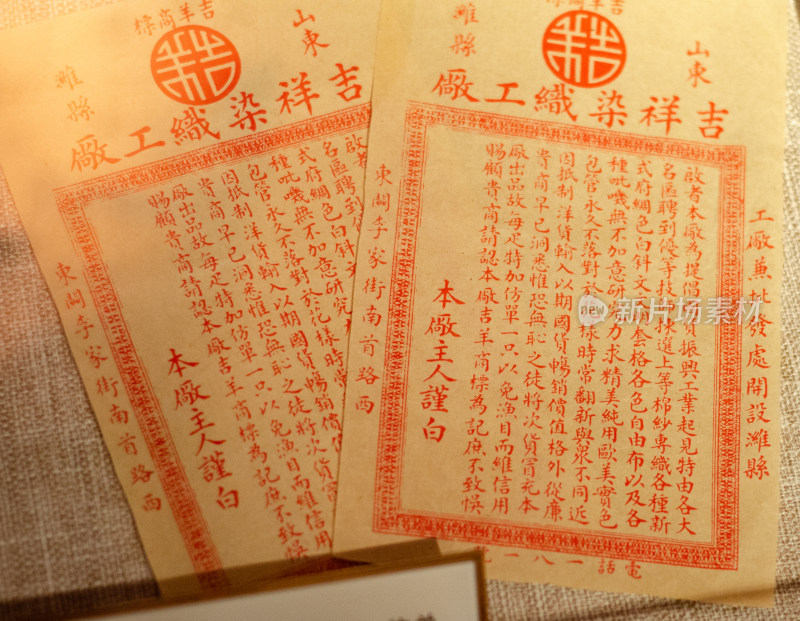 吉羊商標
山東
濰縣
吉祥染織工廠
工廠兼批發處開設濰縣
啟者本廠為提倡國貨振興工業起見特由各大
名區聘到優等技 揀選上等棉紗專織各種新
式府綢色白斜文 套格各色自由布以及各
種吡嘰無不加意研 力求精美純用歐美實色
包管永久不落對於花樣時常翻新與眾不同近
因抵制洋貨輸入以期國貨暢銷價值格外從廉
貴商早已洞悉惟恐無恥之徒將次貨冒充本
廠出品故每疋特加仿單一只以免漁目而維信用
賜顧貴商請認本廠吉羊商標為記庶不致悞
本廠主人謹白
東関李家街南首路西
電話一八一
吉羊商標
山東
濰縣
吉祥染織工廠
啟者本廠
名區聘到
式府綢色白斜文
種吡嘰無不加意研究
包管永久不落對於花樣時常
因抵制洋貨輸入以期國貨暢銷價值
貴商早已洞悉惟恐無恥之徒將次貨
廠出品故每疋特加仿單一只以免漁目而維信用
賜顧貴商請認本廠吉羊商標為記庶不致悞
本廠主人謹白
東関李家街南首路西
new
新华社照片